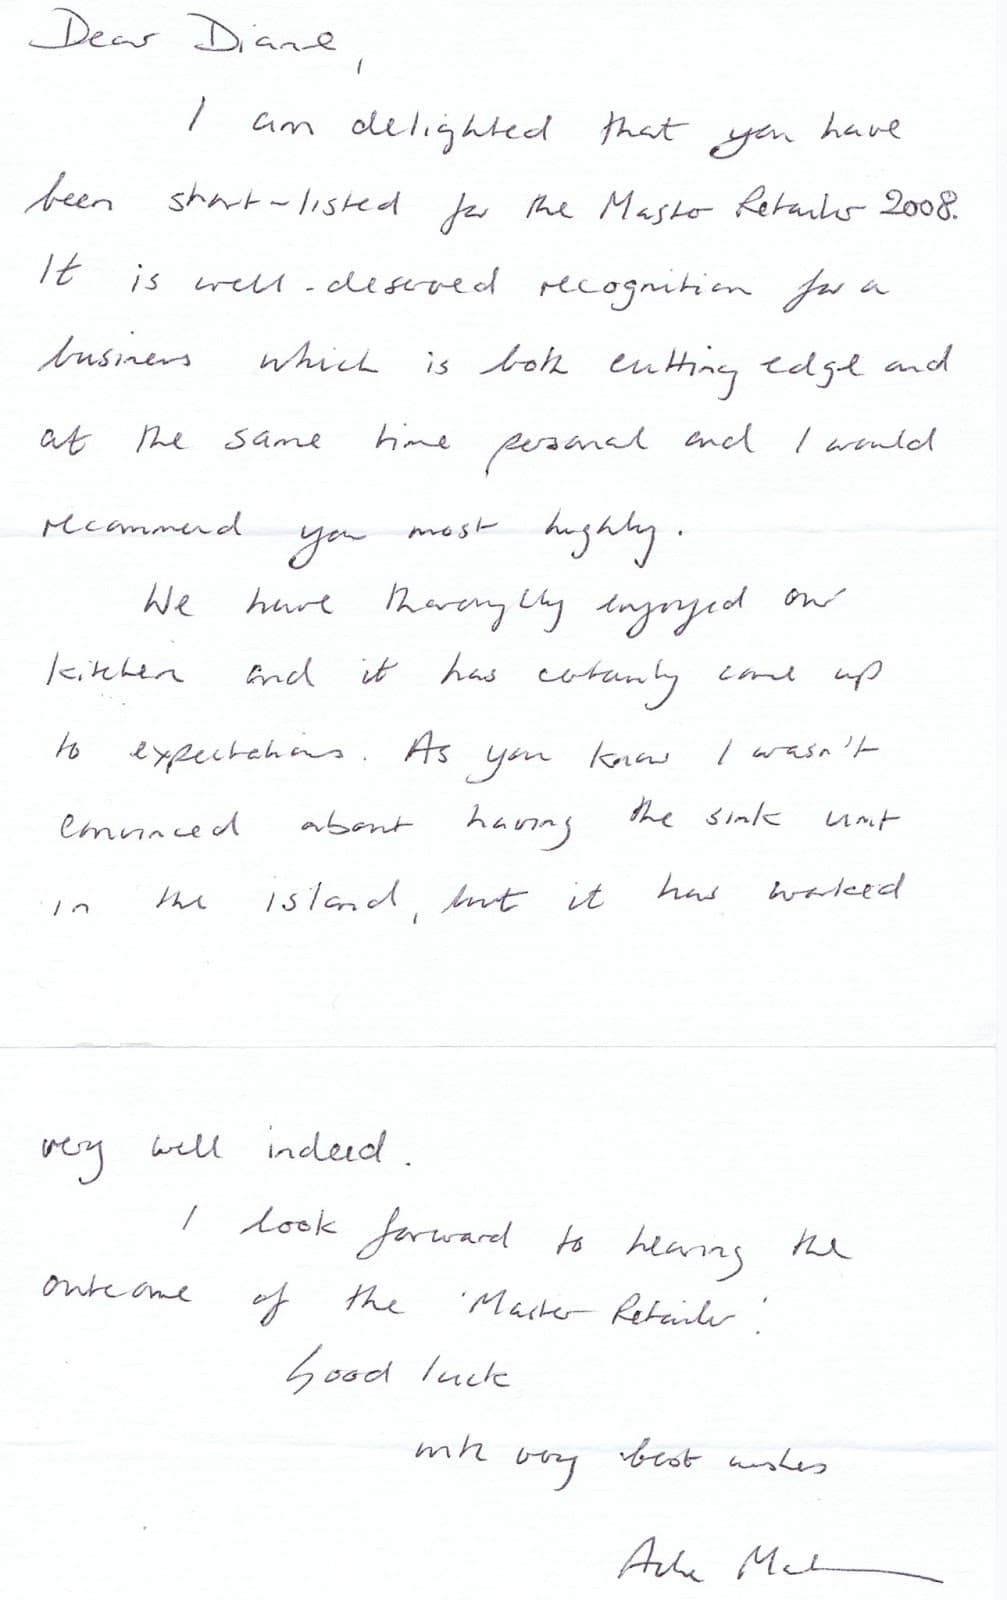 Dear Diane,
I am delighted that you have
been short-listed for the Master Retailer 2008.
It is well-deserved recognition for a
business which is both cutting edge and
at the same time personal and I would
recommend you most highly.
We have thoroughly enjoyed our
kitchen and it has certainly come up
to expectations. As you know I wasn't
convinced about having the sink unit
in the island, but it has worked
very well indeed.
I look forward to hearing the
outcome of the 'Master Retailer'.
Good luck
with very best wishes